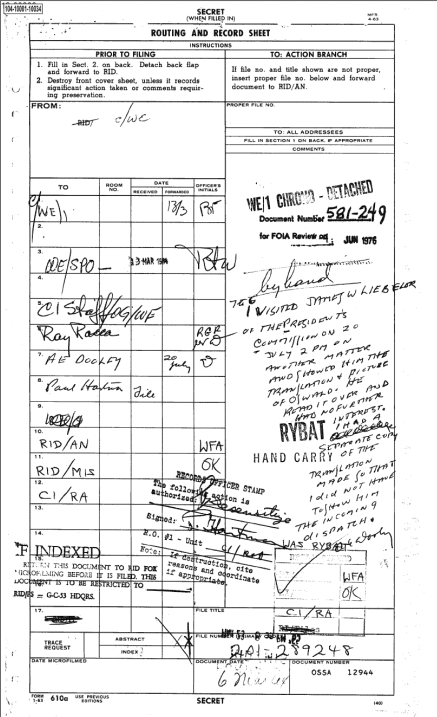 104-10001-10034
SECRET
(WHEN FILLED IN)
ROUTING AND RECORD SHEET
INSTRUCTIONS
PRIOR TO FILING
1. Fill in Sect. 2. on back. Detach back flap and forward to RID.
2. Destroy front cover sheet, unless it records significant action taken or comments requiring preservation.
TO: ACTION BRANCH
If file no. and title shown are not proper, insert proper file no. below and forward document to RID/AN.
FROM:
RID/
C/WE
PROPER FILE NO.
TO: ALL ADDRESSEES
FILL IN SECTION 1 ON BACK, IF APPROPRIATE
COMMENTS
TO
ROOM NO.
DATE
RECEIVED
FORWARDED
OFFICER'S INITIALS
WE/1
13/3
2.
3.
WE/SPO
13 MAR
4.
5.
CI Staff/OG/WE
6.
Ray Rocca
7.
AE DOOLEY
20 July
8.
Paul Hartman
File
9.
10.
RID/AN
WFA
11.
RID/MIS
OK
12.
CI/RA
13.
14.
WE/1 CHRONO - DETACHED
Document Number 581-249
for FOIA Review on JUN 1976
by hand
I VISITED JAMES W LIEBELER
OF THE PRESIDENT'S
COMMISSION ON 20
JULY 2 PM ON
ANOTHER MATTER
AND SHOWED HIM THE
TRANSLATION & PICTURE
OF OSWALD. HE
READ IT OVER AND
HAD NO FURTHER
INTEREST.
I HAD A
SEPARATE COPY
OF THE
TRANSLATION
MADE SO THAT
I DID NOT HAVE
TO SHOW HIM
THE INCOMING
DISPATCH.
RYBAT
HAND CARRY
WAS RYBAT
RECORDS OFFICER STAMP
The following action is
authorized:
Signed:
R.O. #1 - Unit
Note: If destruction, cite
reasons and coordinate
if appropriate.
INDEXED
THIS DOCUMENT TO RID FOR
MICROFILMING BEFORE IT IS FILED. THIS
DOCUMENT IS TO BE RESTRICTED TO
RID/FS = G-C-53 HDQRS.
WFA
OK
17.
FILE TITLE
CI/RA
TRACE REQUEST
ABSTRACT
INDEX
FILE NUMBER
201-289248
DATE MICROFILMED
DOCUMENT DATE
6
DOCUMENT NUMBER
OSSA 12944
FORM 1-63 610a USE PREVIOUS EDITIONS
SECRET
(40)